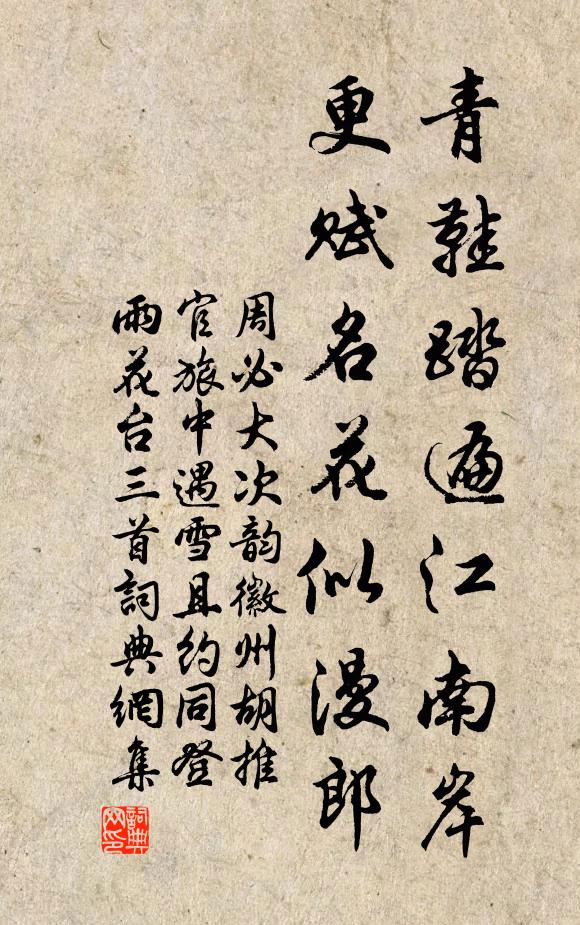 青鞋踏遍江南岸
更賦名花似漫郎
周必大次韵徽州胡推
官旅中遇雪且约同登
雨花台三首詞典網集
詞典
网印